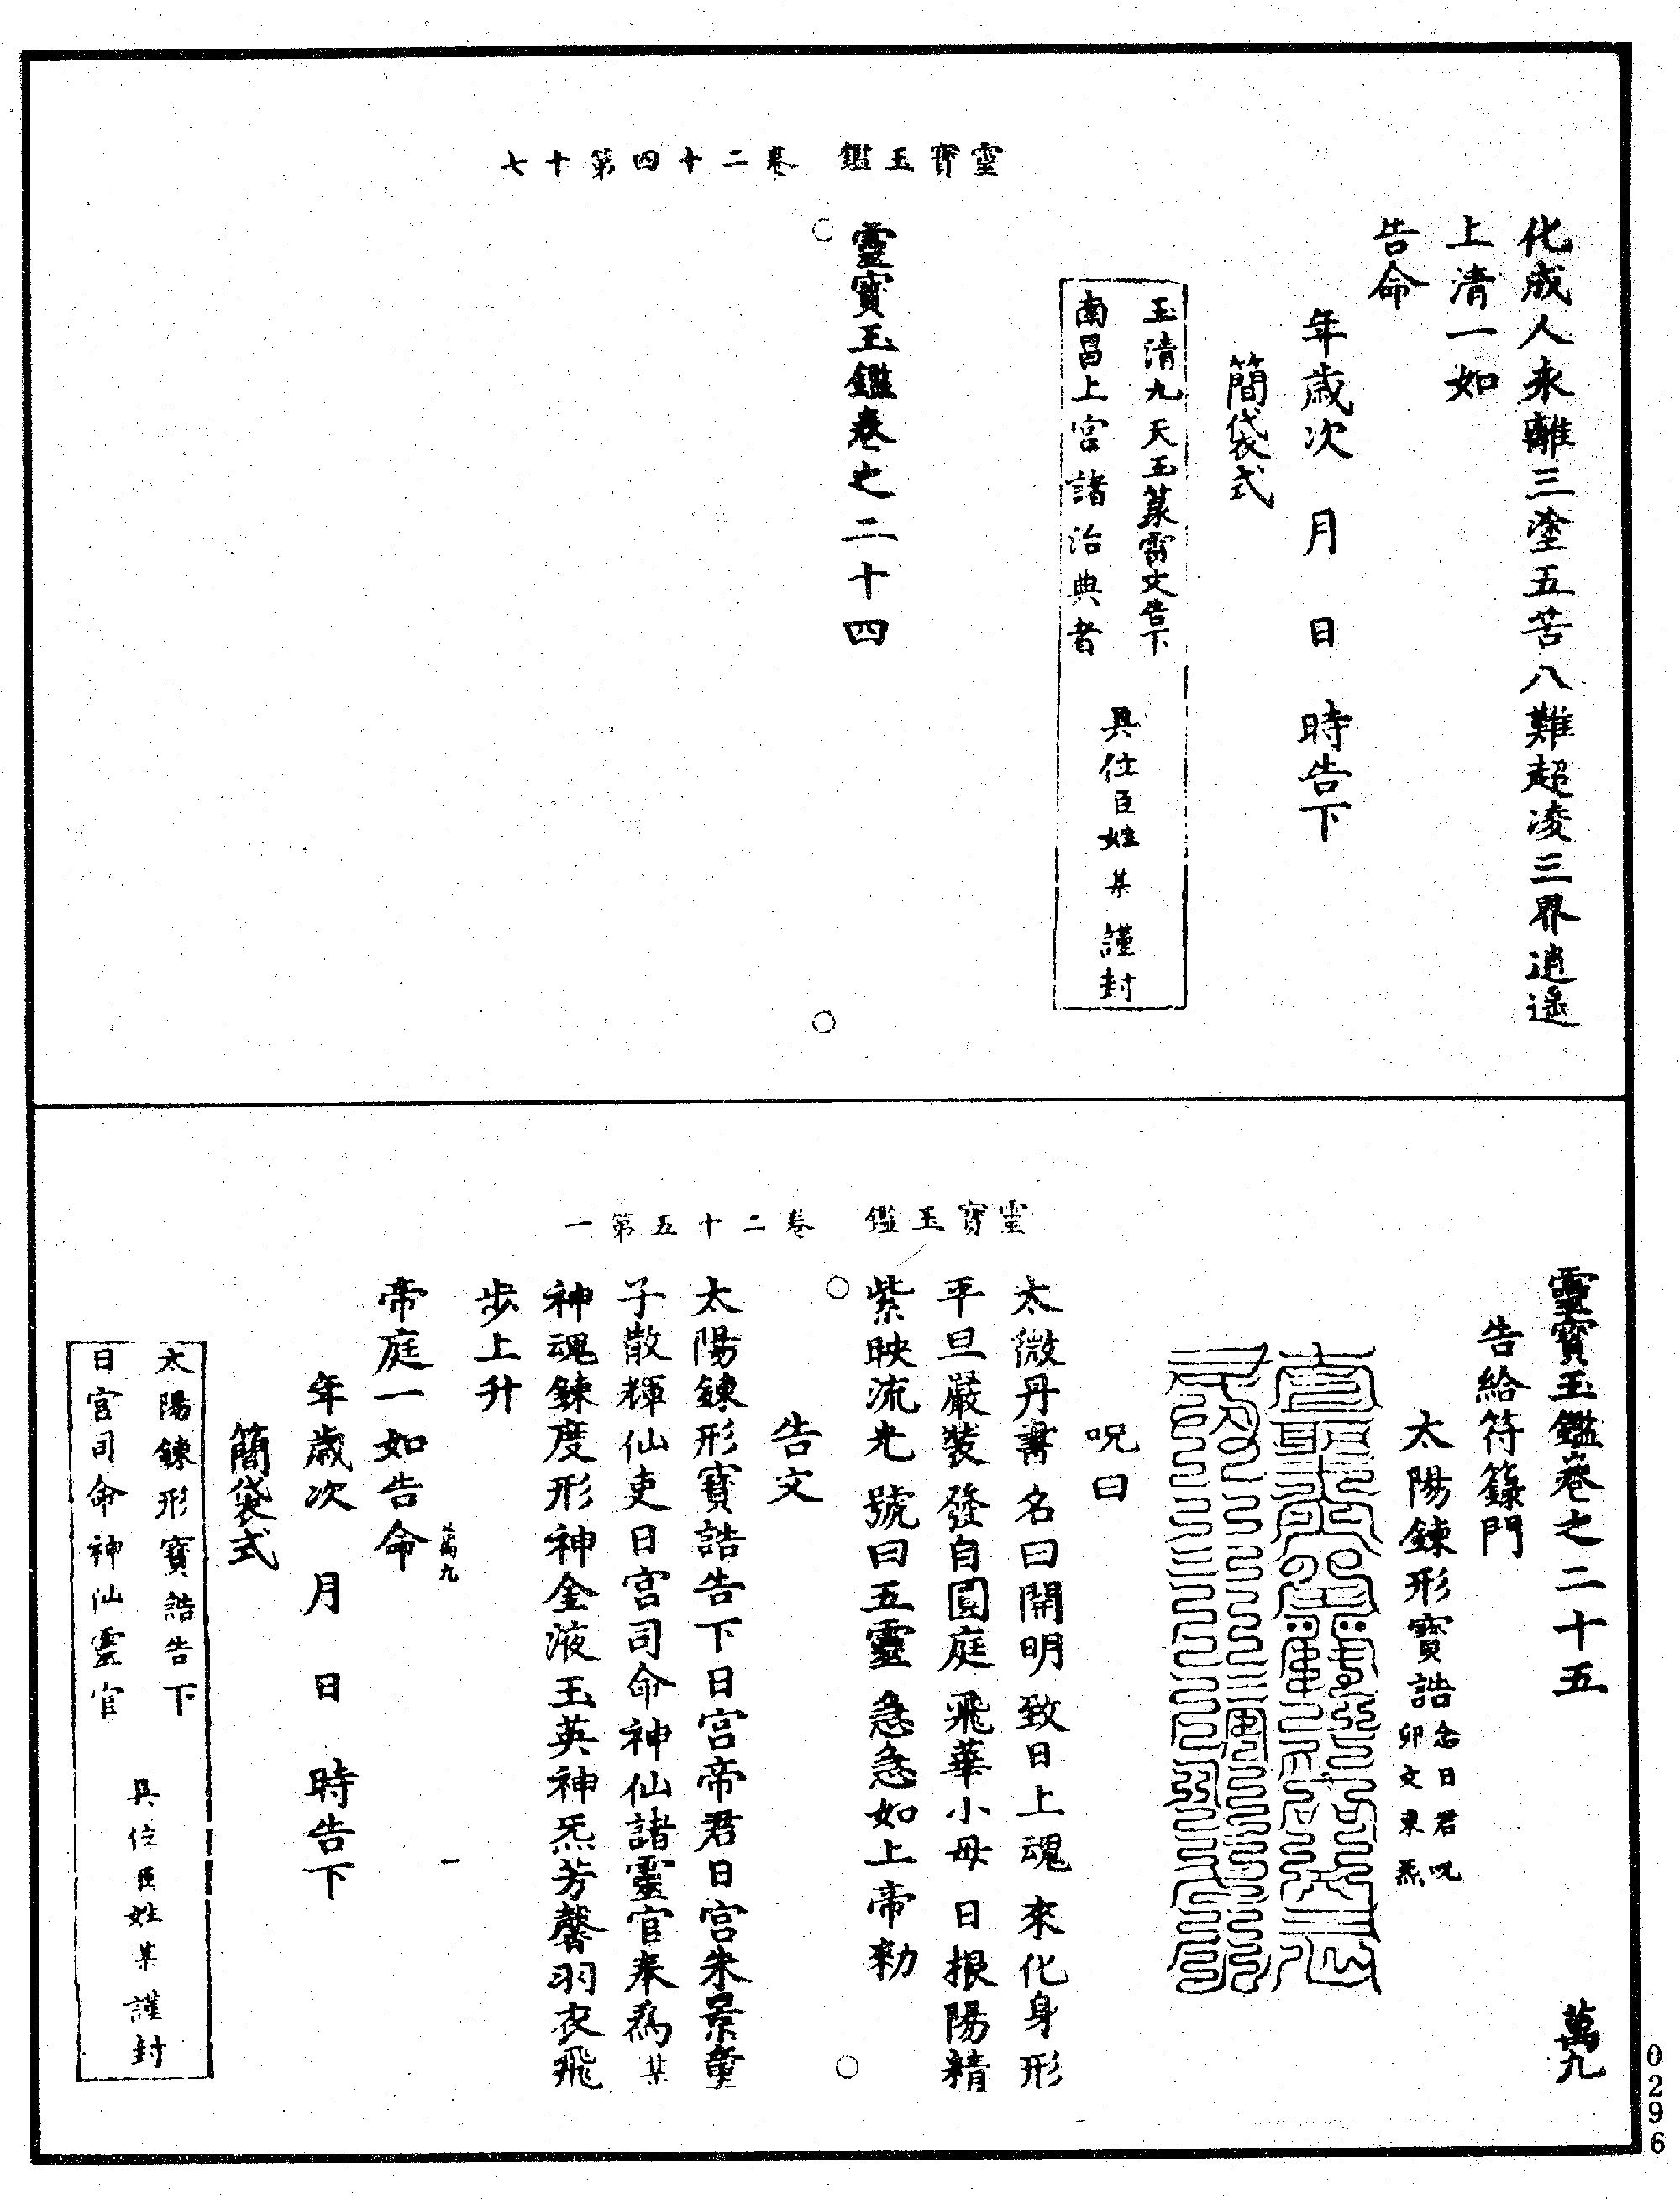 靈寶玉鑑　卷二十四第十七
化成人永離三塗五苦八難超凌三界逍遙
上清一如
告命
年歲次　月　日　時告下
簡袋式
玉清九天玉篆雷文告下
南昌上宮諸治典者
具位臣姓某謹封
靈寶玉鑑卷之二十四
靈寶玉鑑　卷二十五第一
靈寶玉鑑卷之二十五　萬九
告給符籙門
太陽鍊形寶誥念日君呪
卯文東炁
呪曰
太微丹書　名曰開明　致日上魂　來化身形
平旦嚴裝　發自圓庭　飛華小母　日根陽精
紫映流光　號曰五靈　急急如上帝勑
告文
太陽鍊形寶誥告下日宮帝君日宮朱景童
子散輝仙吏日宮司命神仙諸靈官奉為某
神魂鍊度形神金液玉英神炁芳馨羽衣飛
步上升
萬九　一
帝庭一如告命
年歲次　月　日　時告下
簡袋式
太陽鍊形寶誥告下
日宮司命神仙靈官
具位臣姓某謹封
0296